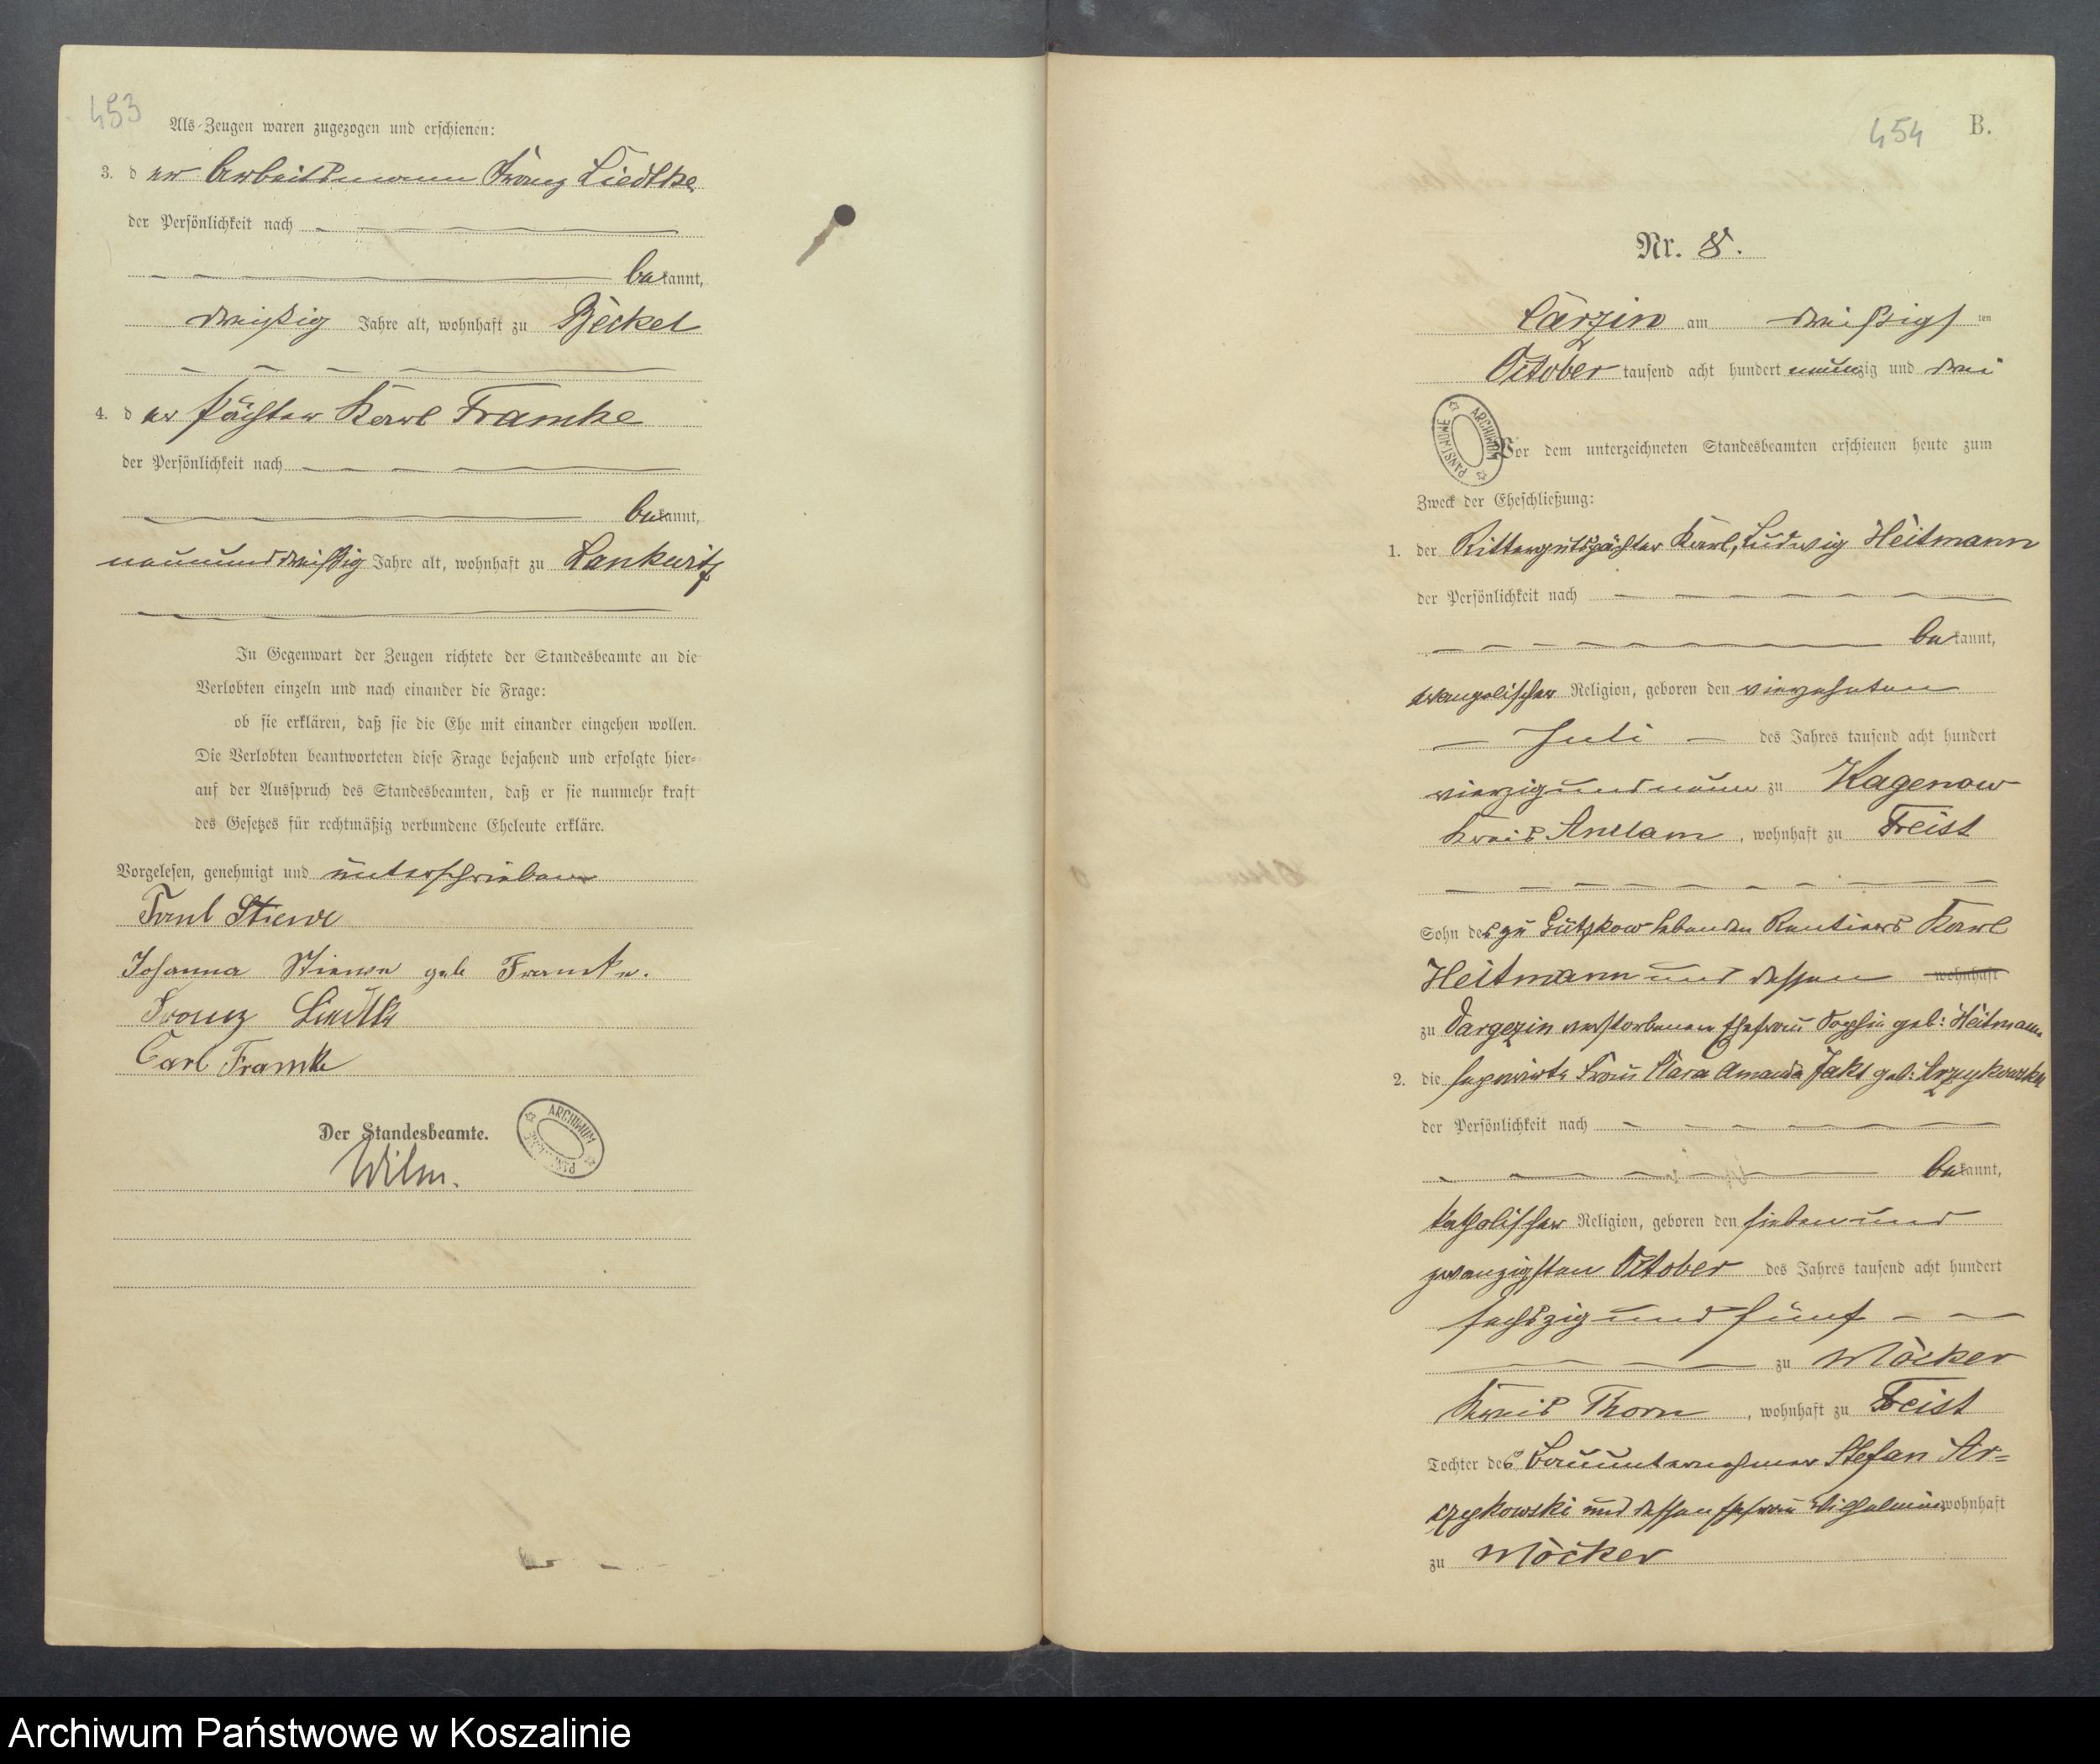 453
Als Zeugen waren zugezogen und erschienen:
3. der Arbeitsmann Franz Liedtke
der Persönlichkeit nach
bekannt,
dreißig Jahre alt, wohnhaft zu Beckel
4. der Pächter Karl Framke
der Persönlichkeit nach
bekannt,
neununddreißig Jahre alt, wohnhaft zu Lankwitz
In Gegenwart der Zeugen richtete der Standesbeamte an die
Verlobten einzeln und nach einander die Frage:
ob sie erklären, daß sie die Ehe mit einander eingehen wollen.
Die Verlobten beantworteten diese Frage bejahend und erfolgte hier-
auf der Ausspruch des Standesbeamten, daß er sie nunmehr kraft
des Gesetzes für rechtmäßig verbundene Eheleute erkläre.
Vorgelesen, genehmigt und unterschrieben
Stiewe
Johanna Stiewe geb Framke.
Franz Liedtke
Carl Framke
Der Standesbeamte.
ARCHIWUM PAŃSTWOWE
Wilm.
454 B.
Nr. 8.
Carzin am dreißigsten
October tausend acht hundert neunzig und drei
ARCHIWUM PAŃSTWOWE
Vor dem unterzeichneten Standesbeamten erschienen heute zum
Zweck der Eheschließung:
1. der Rittergutspächter Karl, Ludwig Heitmann
der Persönlichkeit nach
bekannt,
evangelischer Religion, geboren den vierzehnten
Juli des Jahres tausend acht hundert
vierzig und neun zu Kagenow
Kreis Anclam, wohnhaft zu Freist
Sohn des zu Gützkow lebenden Rentiers Karl
Heitmann und dessen wohnhaft
zu Dargezin verstorbenen Ehefrau Sophie geb: Heitmann
2. die Frau Clara Amanda Jaks geb:
der Persönlichkeit nach
bekannt,
katholischer Religion, geboren den sieben und
zwanzigsten October des Jahres tausend acht hundert
sechszig und fünf
zu Möcker
Kreis Thorn, wohnhaft zu Freist
Tochter des Bauunternehmer Stefan Ar=
czykowski und dessen Ehefrau Wilhelmine wohnhaft
zu Möcker
Archiwum Państwowe w Koszalinie